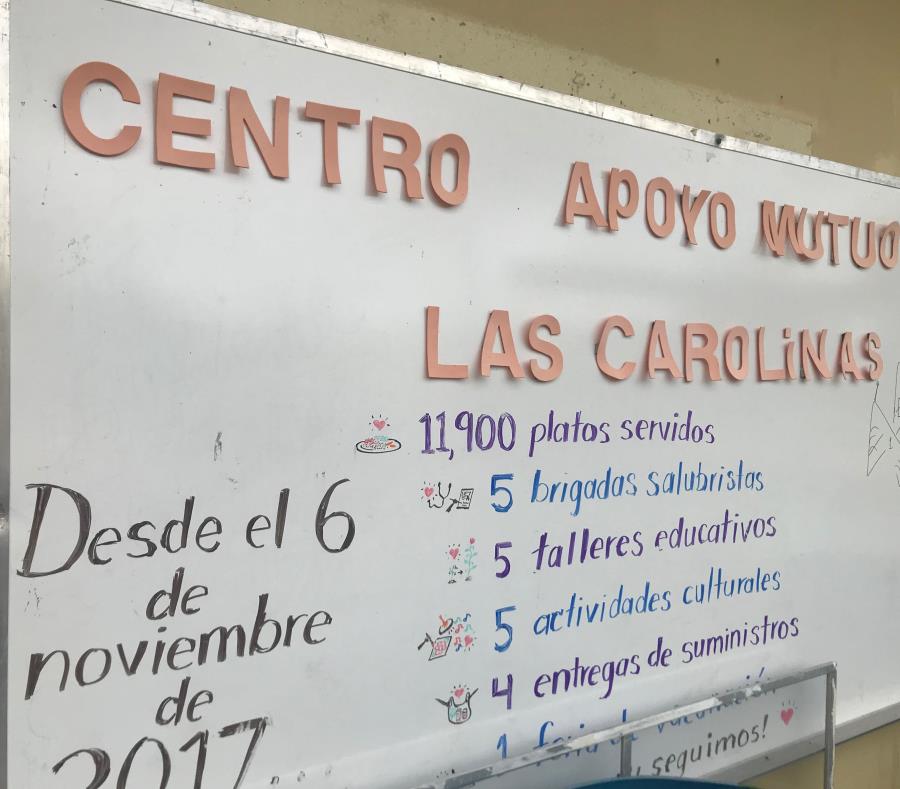 CENTRO APOYO MUTUO
LAS CAROLiNAS
11,900 platos servidos
5 brigadas salubristas
5 talleres educativos
5 actividades culturales
4 entregas de suministros
1 feria de vacunación
¡y seguimos!
Desde el 6
de
noviembre
de
2017...